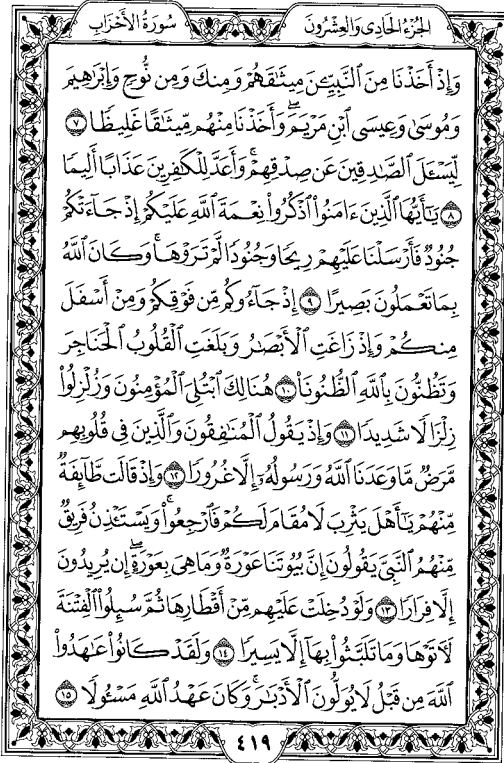 الجزء الحادي والعشرون
سورة الأحزاب
وَإِذْ أَخَذْنَا مِنَ ٱلنَّبِيِّـۧنَ مِيثَٰقَهُمْ وَمِنكَ وَمِن نُّوحٍ وَإِبْرَٰهِيمَ
وَمُوسَىٰ وَعِيسَى ٱبْنِ مَرْيَمَ ۖ وَأَخَذْنَا مِنْهُم مِّيثَٰقًا غَلِيظًا ٧
لِّيَسْـَٔلَ ٱلصَّٰدِقِينَ عَن صِدْقِهِمْ ۚ وَأَعَدَّ لِلْكَٰفِرِينَ عَذَابًا أَلِيمًا
٨ يَٰٓأَيُّهَا ٱلَّذِينَ ءَامَنُوا۟ ٱذْكُرُوا۟ نِعْمَةَ ٱللَّهِ عَلَيْكُمْ إِذْ جَآءَتْكُمْ
جُنُودٌ فَأَرْسَلْنَا عَلَيْهِمْ رِيحًا وَجُنُودًا لَّمْ تَرَوْهَا ۚ وَكَانَ ٱللَّهُ
بِمَا تَعْمَلُونَ بَصِيرًا ٩ إِذْ جَآءُوكُم مِّن فَوْقِكُمْ وَمِنْ أَسْفَلَ
مِنكُمْ وَإِذْ زَاغَتِ ٱلْأَبْصَٰرُ وَبَلَغَتِ ٱلْقُلُوبُ ٱلْحَنَاجِرَ
وَتَظُنُّونَ بِٱللَّهِ ٱلظُّنُونَا۠ ١٠ هُنَالِكَ ٱبْتُلِىَ ٱلْمُؤْمِنُونَ وَزُلْزِلُوا۟
زِلْزَالًا شَدِيدًا ١١ وَإِذْ يَقُولُ ٱلْمُنَٰفِقُونَ وَٱلَّذِينَ فِى قُلُوبِهِم
مَّرَضٌ مَّا وَعَدَنَا ٱللَّهُ وَرَسُولُهُۥٓ إِلَّا غُرُورًا ١٢ وَإِذْ قَالَت طَّآئِفَةٌ
مِّنْهُمْ يَٰٓأَهْلَ يَثْرِبَ لَا مُقَامَ لَكُمْ فَٱرْجِعُوا۟ ۚ وَيَسْتَـْٔذِنُ فَرِيقٌ
مِّنْهُمُ ٱلنَّبِىَّ يَقُولُونَ إِنَّ بُيُوتَنَا عَوْرَةٌ وَمَا هِىَ بِعَوْرَةٍ ۖ إِن يُرِيدُونَ
إِلَّا فِرَارًا ١٣ وَلَوْ دُخِلَتْ عَلَيْهِم مِّنْ أَقْطَارِهَا ثُمَّ سُئِلُوا۟ ٱلْفِتْنَةَ
لَـَٔاتَوْهَا وَمَا تَلَبَّثُوا۟ بِهَآ إِلَّا يَسِيرًا ١٤ وَلَقَدْ كَانُوا۟ عَٰهَدُوا۟
ٱللَّهَ مِن قَبْلُ لَا يُوَلُّونَ ٱلْأَدْبَٰرَ ۚ وَكَانَ عَهْدُ ٱللَّهِ مَسْـُٔولًا ١٥
٤١٩